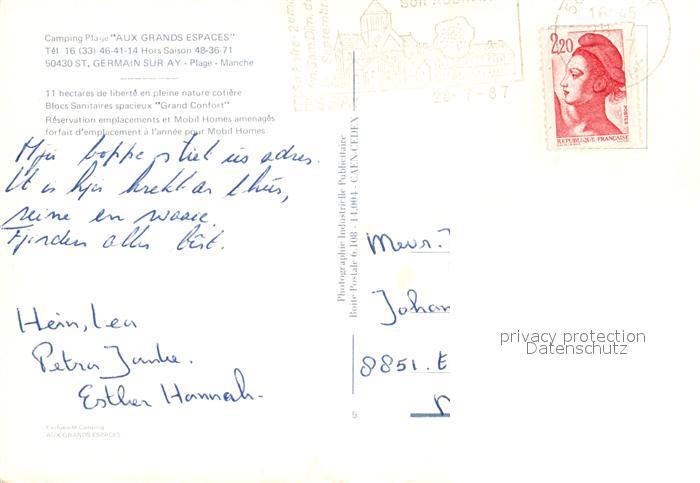 Camping Plage "AUX GRANDS ESPACES"
Tél 16 (33) 46-41-14 Hors Saison 48-36-71
50430 ST. GERMAIN SUR AY - Plage - Manche
11 hectares de liberté en pleine nature cotière
Blocs Sanitaires spacieux "Grand Confort"
Réservation emplacements et Mobil Homes amenagés
forfait d'emplacement à l'année pour Mobil Homes
boppe stiet ús adres.
It is hjir krekt as thús,
reine en waaie.
Fjirder alles bêst.
Hein, Lea
Petra Janke.
Esther Hannah.
Exclusivité Camping
AUX GRANDS ESPACES
Photographie Industrielle Publicitaire
Boite Postale 6.108 - 14.004 - CAEN-CEDEX
5
LESSA
28-7-87
16-45
2,20
POSTES
REPUBLIQUE FRANÇAISE
Mevr.
Johan
8851. E
privacy protection
Datenschutz